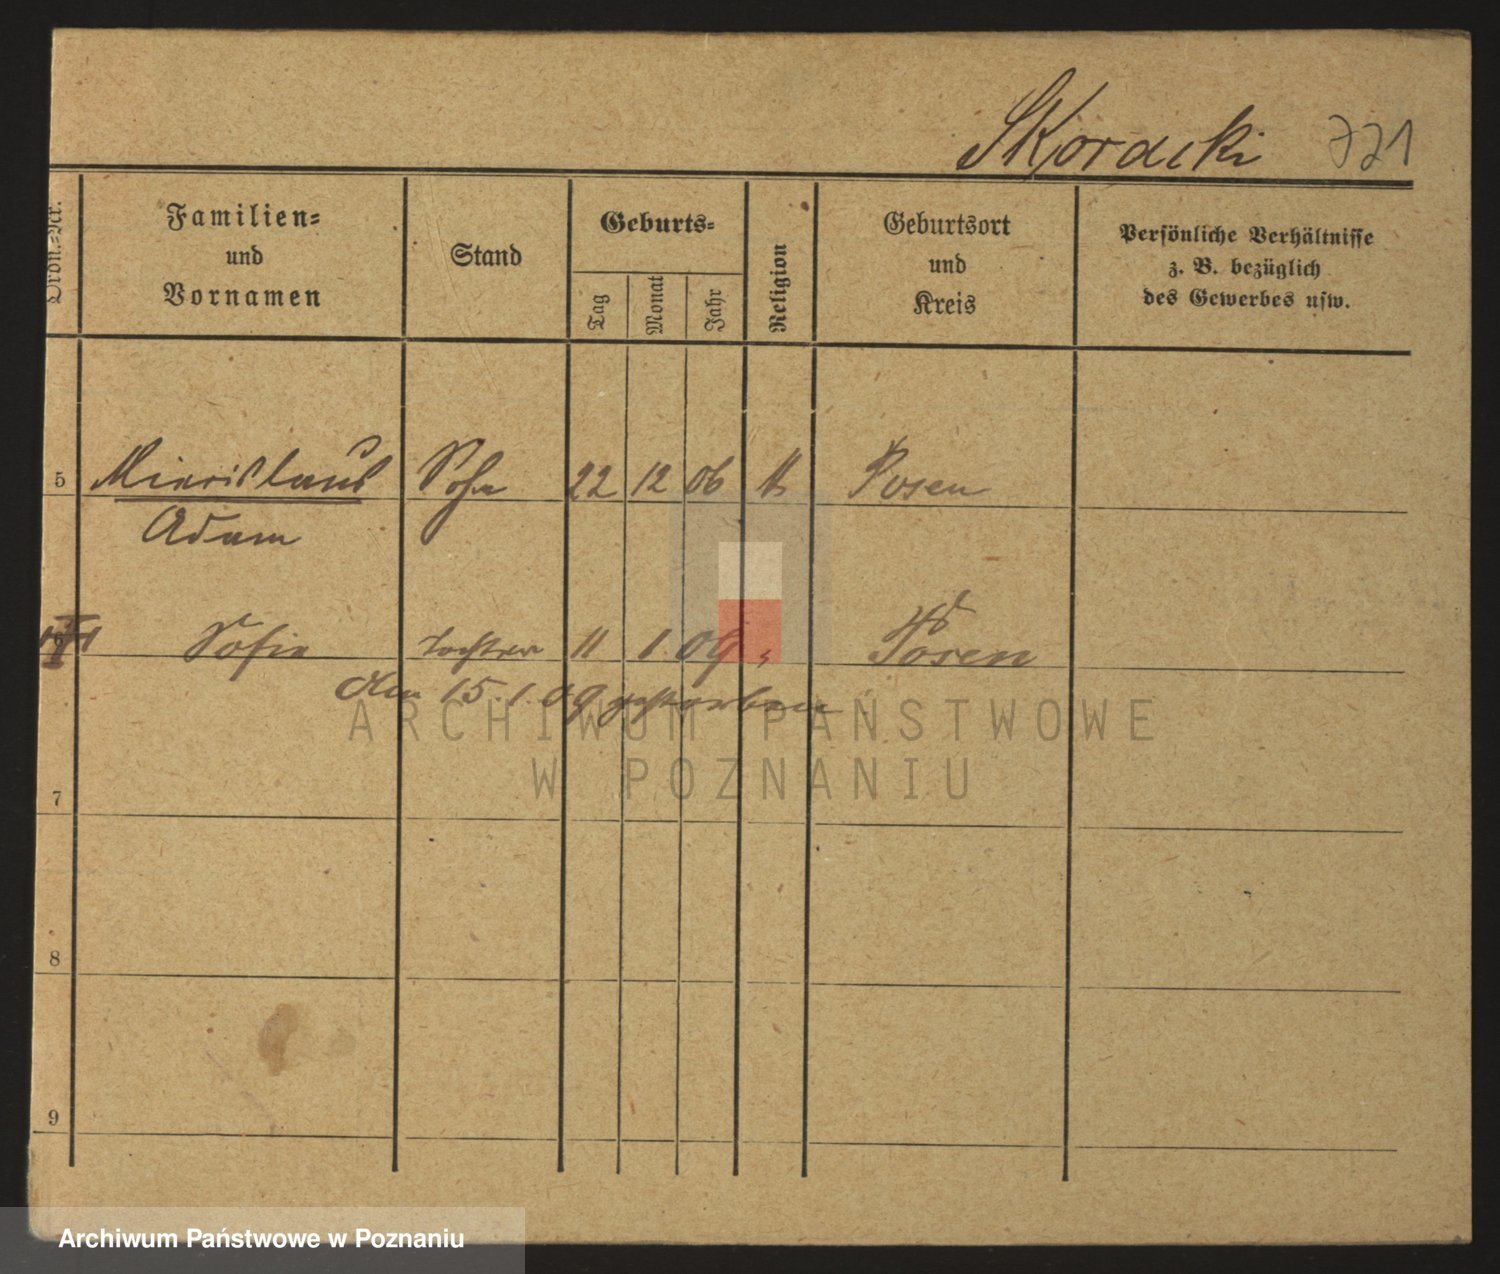 Skoracki 721
Ordn.-Nr.
Familien-
und
Vornamen
Stand
Geburts-
Tag
Monat
Jahr
Religion
Geburtsort
und
Kreis
Persönliche Verhältnisse
z. B. bezüglich
des Gewerbes usw.
5 Miecislaus Sohn 22 12 06 k Posen
Adam
6 Sofie Tochter 11 1 09 " Posen
Am 15.1.09 gestorben
7
8
9
ARCHIWUM PAŃSTWOWE
W POZNANIU
Archiwum Państwowe w Poznaniu